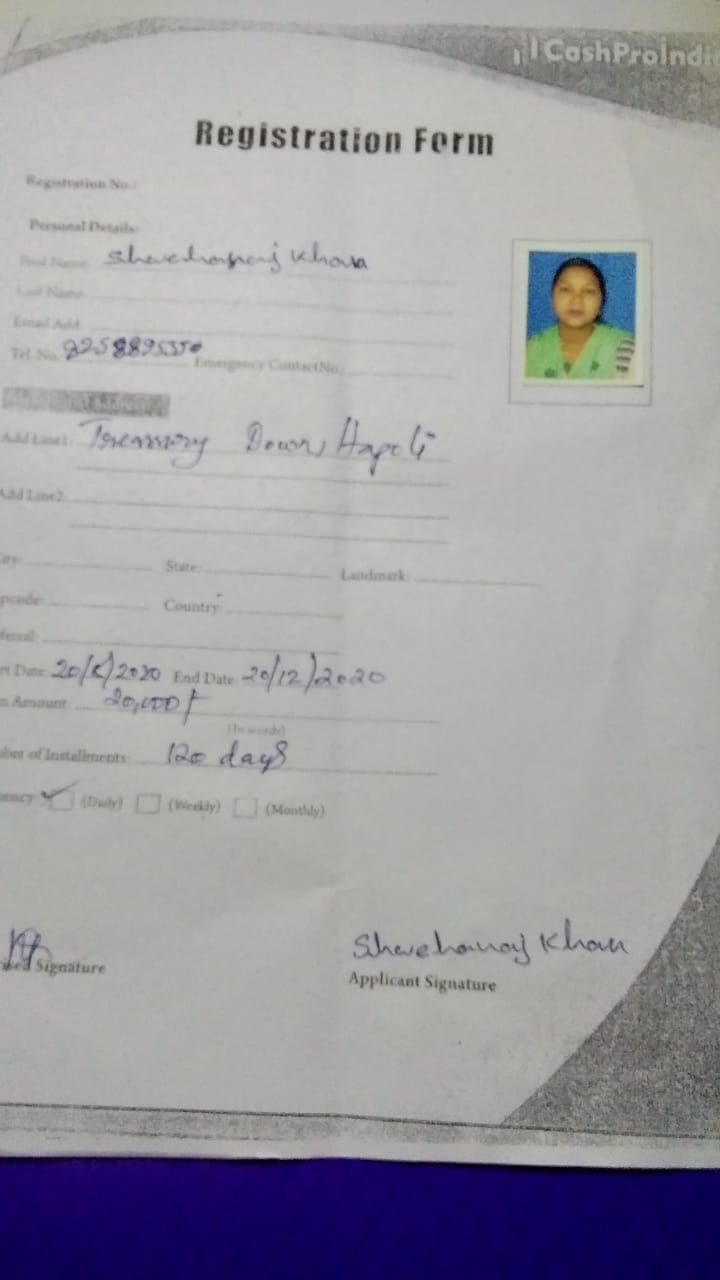 CashProIndi
Registration Form
Registration No.:
Personal Details:
First Name: Khan
Last Name
Email Add:
Tel. No. Emergency Contact No.:
Add Line1: Hapoli
Add Line2:
State: Landmark:
pcode: Country:
ferral:
rt Date: 20/8/2020 End Date: 20/12/2020
n Amount: 20,000/-
(In words)
ber of Installments: 120 days
ency: (Daily) (Weekly) (Monthly)
Shwehanaj Khan
Signature
Applicant Signature